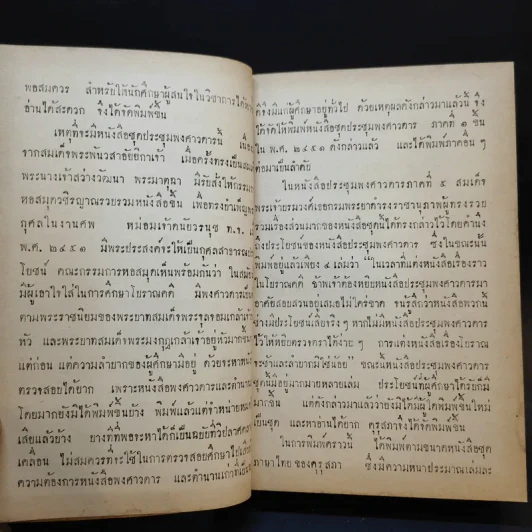 พอสมควร สำหรับให้นักศึกษาผู้สนใจในวิชาการได้
อ่านได้สะดวก จึงได้จัดพิมพ์ขึ้น
เหตุที่จะมีหนังสือชุดประชุมพงศาวดารนี้ เนื่อง
จากสมเด็จพระพันวสาอัยยิกาเจ้า เมื่อครั้งทรงเป็นสมเด็จ
พระนางเจ้าสว่างวัฒนา พระมาตุฉา มีรับสั่งให้กรรม
หอสมุดวชิรญาณรวบรวมหนังสือขึ้น เพื่อทรงบำเพ็ญพระ
กุศลในงานศพ หม่อมเจ้าดนัยวรนุช ท.จ.
พ.ศ. ๒๔๕๑ มีพระประสงค์จะให้เป็นกุศลสาธารณ
โยชน์ คณะกรรมการหอสมุดเห็นพร้อมกันว่า ในสมัย
มีผู้เอาใจใส่ในการศึกษาโบราณคดี มีพงศาวดารเป็น
ตามพระราชนิยมของพระบาทสมเด็จพระจุลจอมเกล้า
หัว และพระบาทสมเด็จพระมงกุฎเกล้าเจ้าอยู่หัวมากขึ้น
แต่ก่อน แต่ความลำบากของผู้ศึกษามีอยู่ ด้วยจะหาหนัง
ตรวจสอบได้ยาก เพราะหนังสือพงศาวดารและตำนาน
โดยมากยังมิได้พิมพ์ขึ้นบ้าง พิมพ์แล้วแต่จำหน่ายหมด
เสียแล้วบ้าง บางที่ที่พอจะหาได้ก็เป็นฉบับที่วิปลาส
เคลื่อน ไม่สมควรที่จะใช้ในการตรวจสอบศึกษา
ความต้องการหนังสือพงศาวดาร และตำนานเก่า
ดีจึงมีแก่ผู้ศึกษาอยู่ทั่วไป ด้วยเหตุผลดังกล่าวมาแล้วนี้ จึง
ได้จัดให้พิมพ์หนังสือชุดประชุมพงศาวดาร ภาคที่ ๑ ขึ้น
ใน พ.ศ. ๒๔๕๗ ดังกล่าวแล้ว และได้พิมพ์ภาคอื่น ๆ
ต่อมาเป็นลำดับ
ในหนังสือประชุมพงศาวดารภาคที่ ๕ สมเด็จ
พระเจ้าบรมวงศ์เธอกรมพระยาดำรงราชานุภาพผู้ทรงรวบ
รวมเรื่องส่วนมากของหนังสือชุดนี้ได้ทรงกล่าวไว้โดยคำนึง
ถึงประโยชน์ของหนังสือประชุมพงศาวดาร ซึ่งในขณะนั้น
พิมพ์อยู่แล้วเพียง ๔ เล่มว่า "ในเวลาที่แต่งหนังสือเรื่องราว
ในโบราณคดี ข้าพเจ้าต้องหยิบหนังสือประชุมพงศาวดารมา
อาศัยสอบสวนอยู่เสมอไม่ใคร่ขาด จนรู้สึกว่าหนังสือพวกนี้
ช่างมีประโยชน์เสียจริง ๆ หากไม่มีหนังสือประชุมพงศาวดาร
ไว้ให้หยิบตรวจตราได้ง่าย ๆ การแต่งหนังสือเรื่องโบราณ
จะช้าและลำบากมิใช่น้อย" ขณะนี้หนังสือประชุมพงศาวดาร
ชุดนี้มีอยู่มากมายหลายเล่ม ประโยชน์ที่ผู้ศึกษาได้รับก็มี
มากขึ้น แต่ดังกล่าวมาแล้วว่ายังมิได้มีผู้ใดพิมพ์ขึ้นใหม่
เป็นชุด และหาอ่านได้ยาก คุรุสภาจึงได้จัดพิมพ์ขึ้น
ในการพิมพ์คราวนี้ ได้พิมพ์ตามขนาดหนังสือชุด
ภาษาไทย ของคุรุสภา ซึ่งมีความหนาประมาณเล่มละ